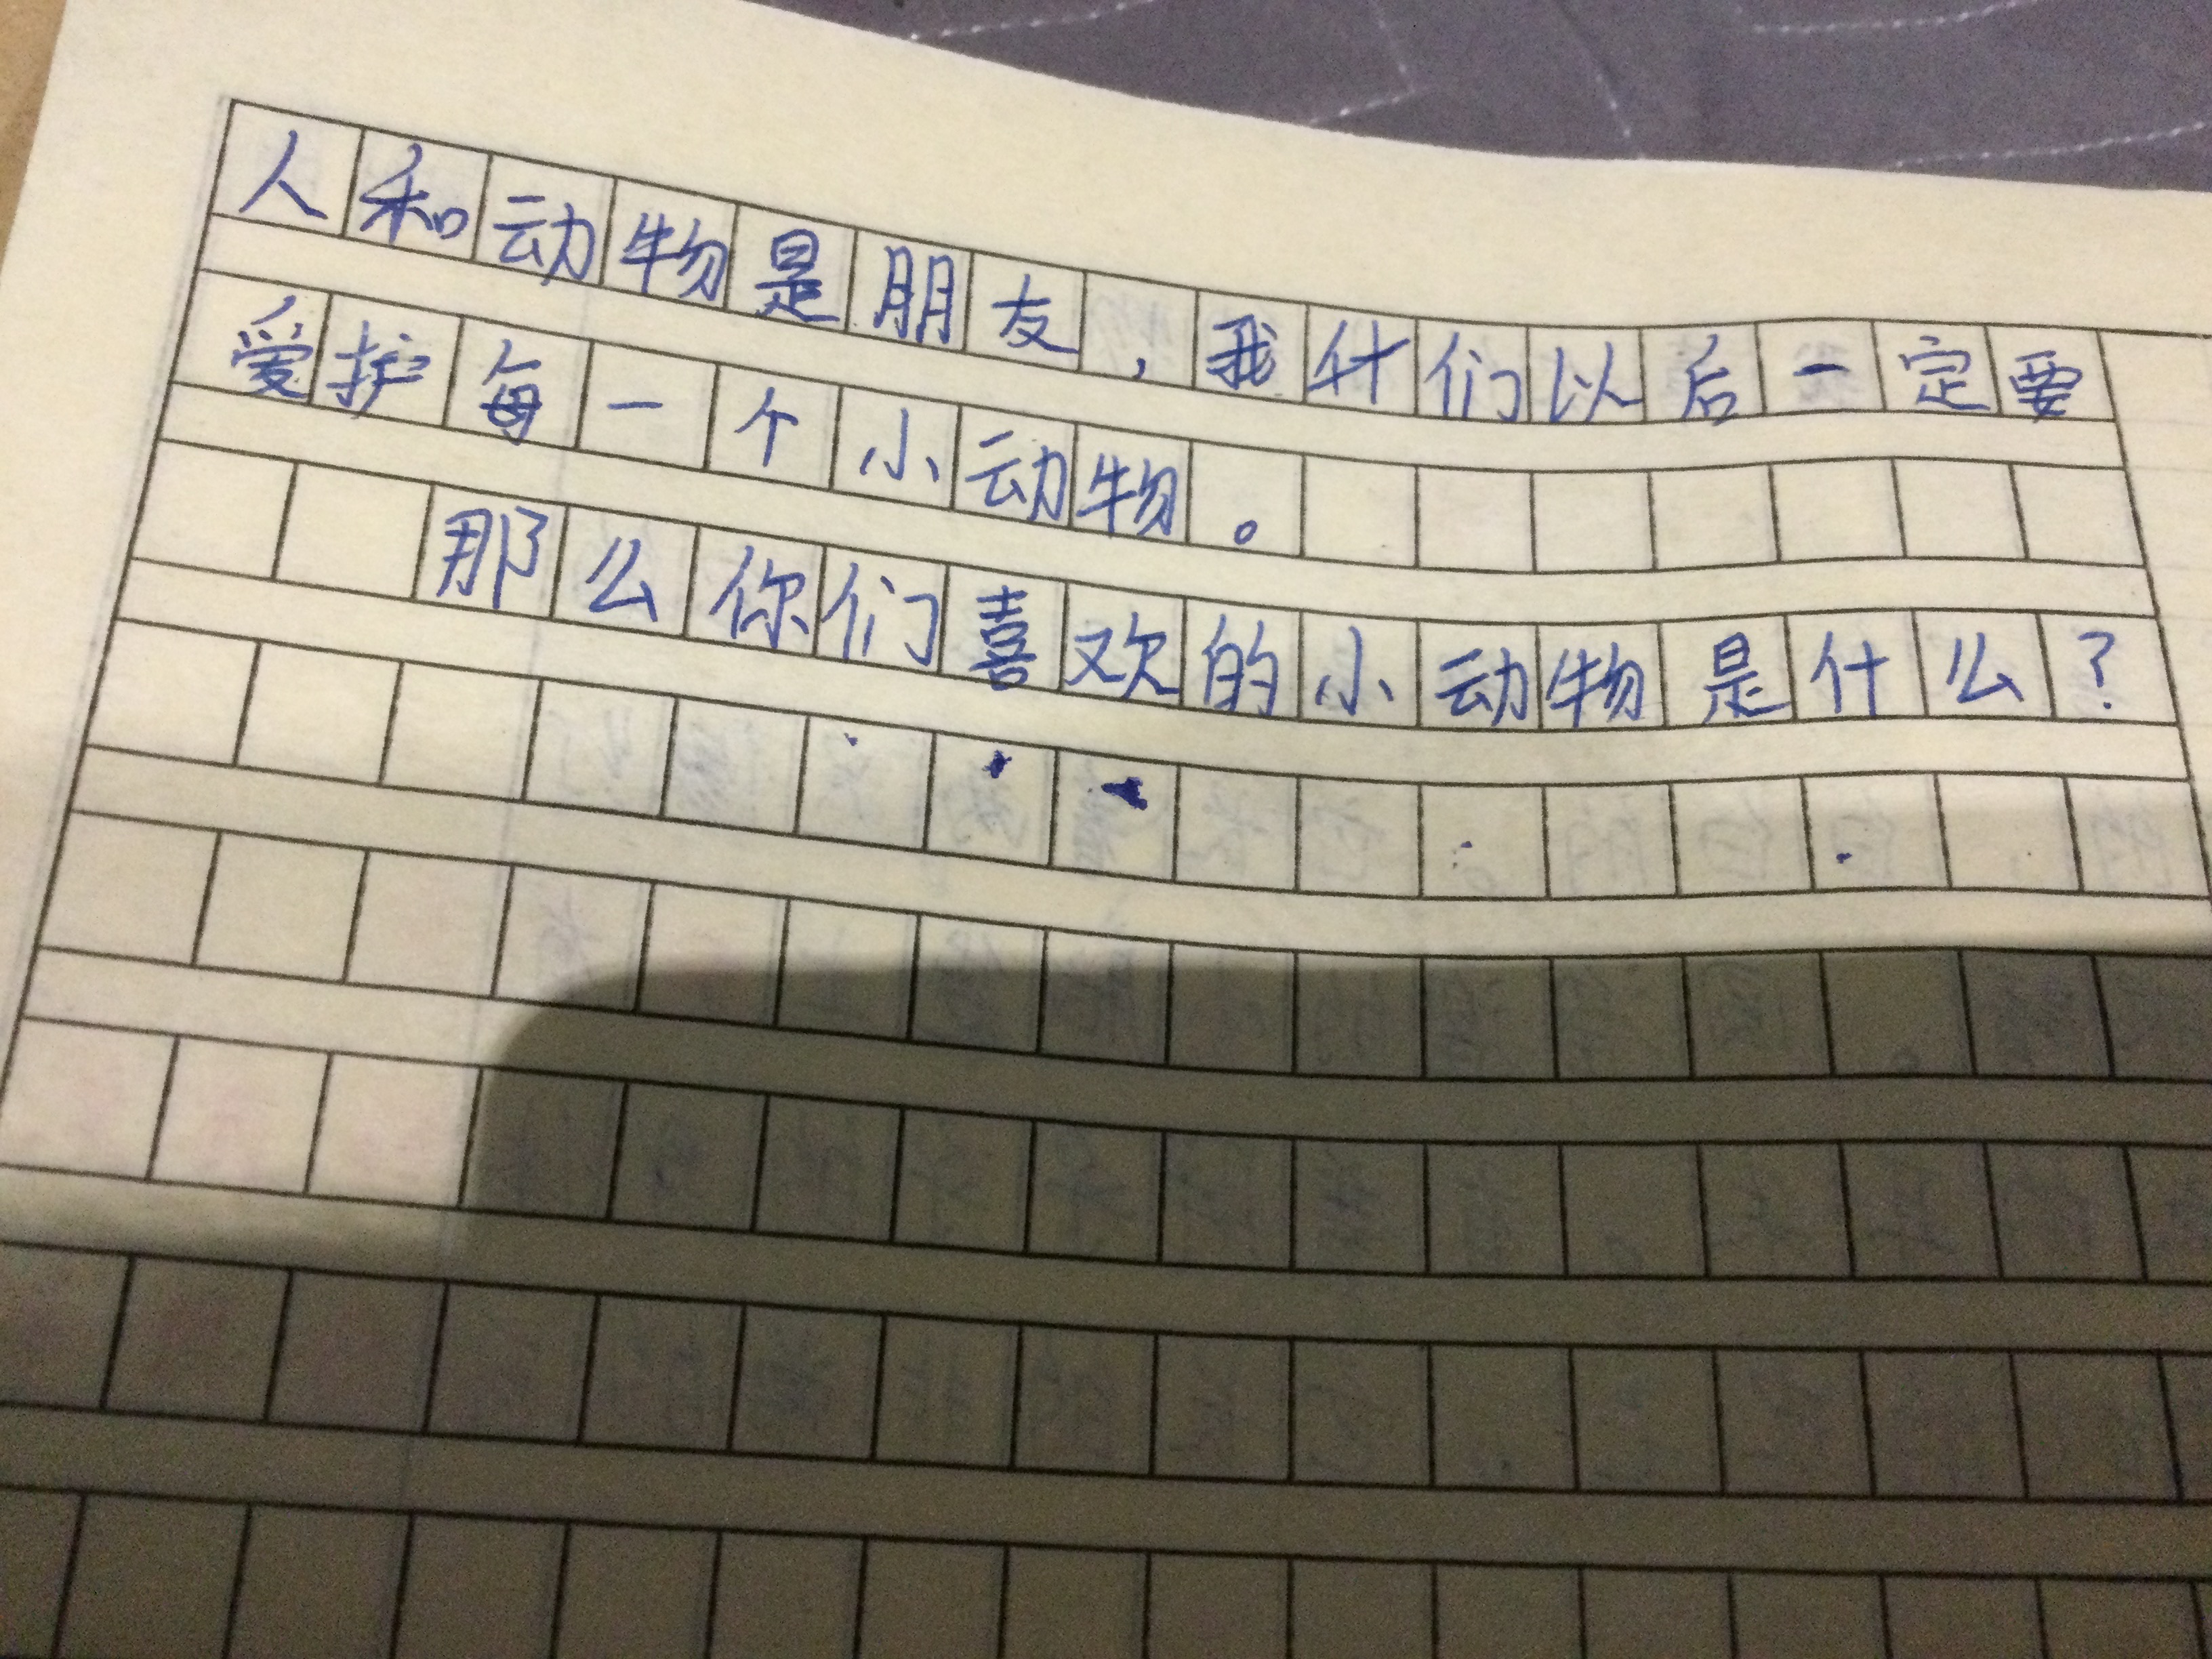 人和动物是朋友，我什们以后一定要
爱护每一个小动物。
那么你们喜欢的小动物是什么？